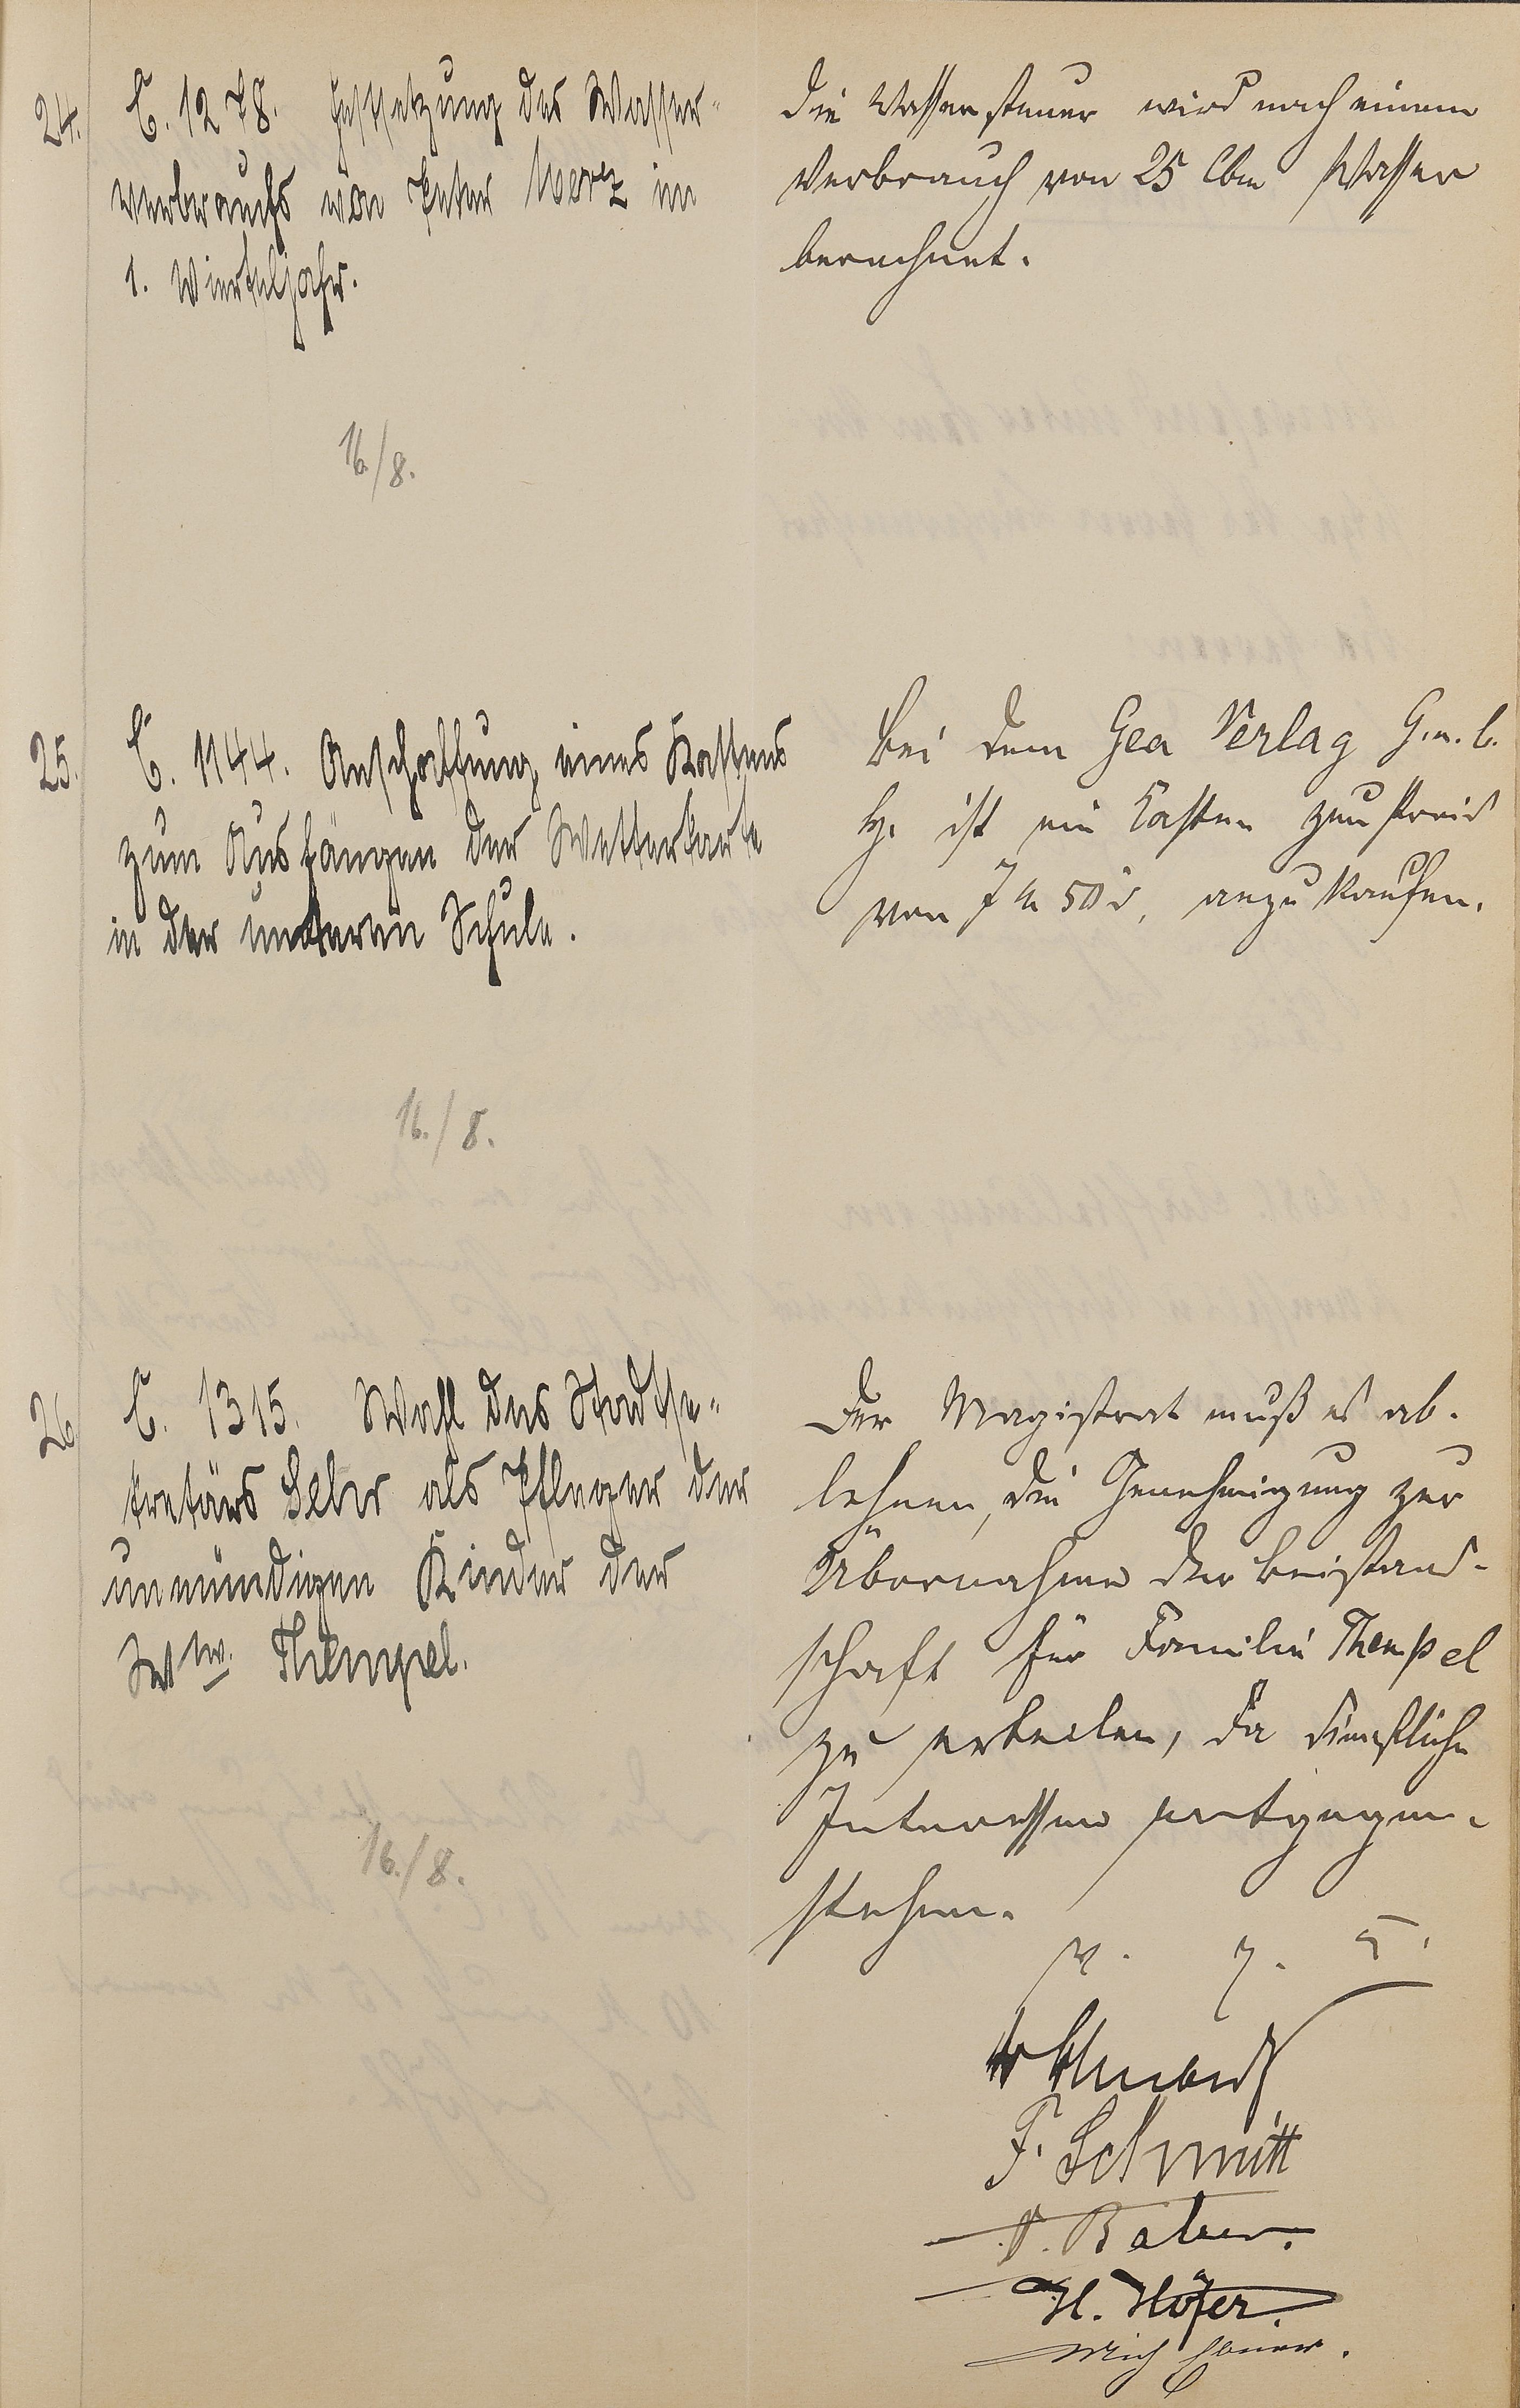 24.
C. 1278. Festsetzung des Wasser-
verbrauchs von Peter Merz im
1. Vierteljahr.
Die Wassersteuer wird nach einem
Verbrauch von 25 Cbm Wasser
berechnet.
16./8.
25.
C. 1144. Anschaffung eines Kastens
zum Aushängen der Wetterkarte
in der unteren Schule.
Bei dem Gea Verlag G.m.b.
H. ist ein Kasten zum Preis
von 7 M 50 d. anzukaufen.
16./8.
26
C. 1315. Wahl des Stadtse-
kretärs Sehr als Pfleger der
unmündigen Kinder der
Ww. Thempel.
Der Magistrat muß es ab-
lehnen, die Genehmigung zur
Übernahme der Beistand-
schaft für Familie Thempel
zu erteilen, da dienstliche
Interessen entgegen-
stehen.
16./8.
v. g. u.
F. Schmitt
H. Höfer.